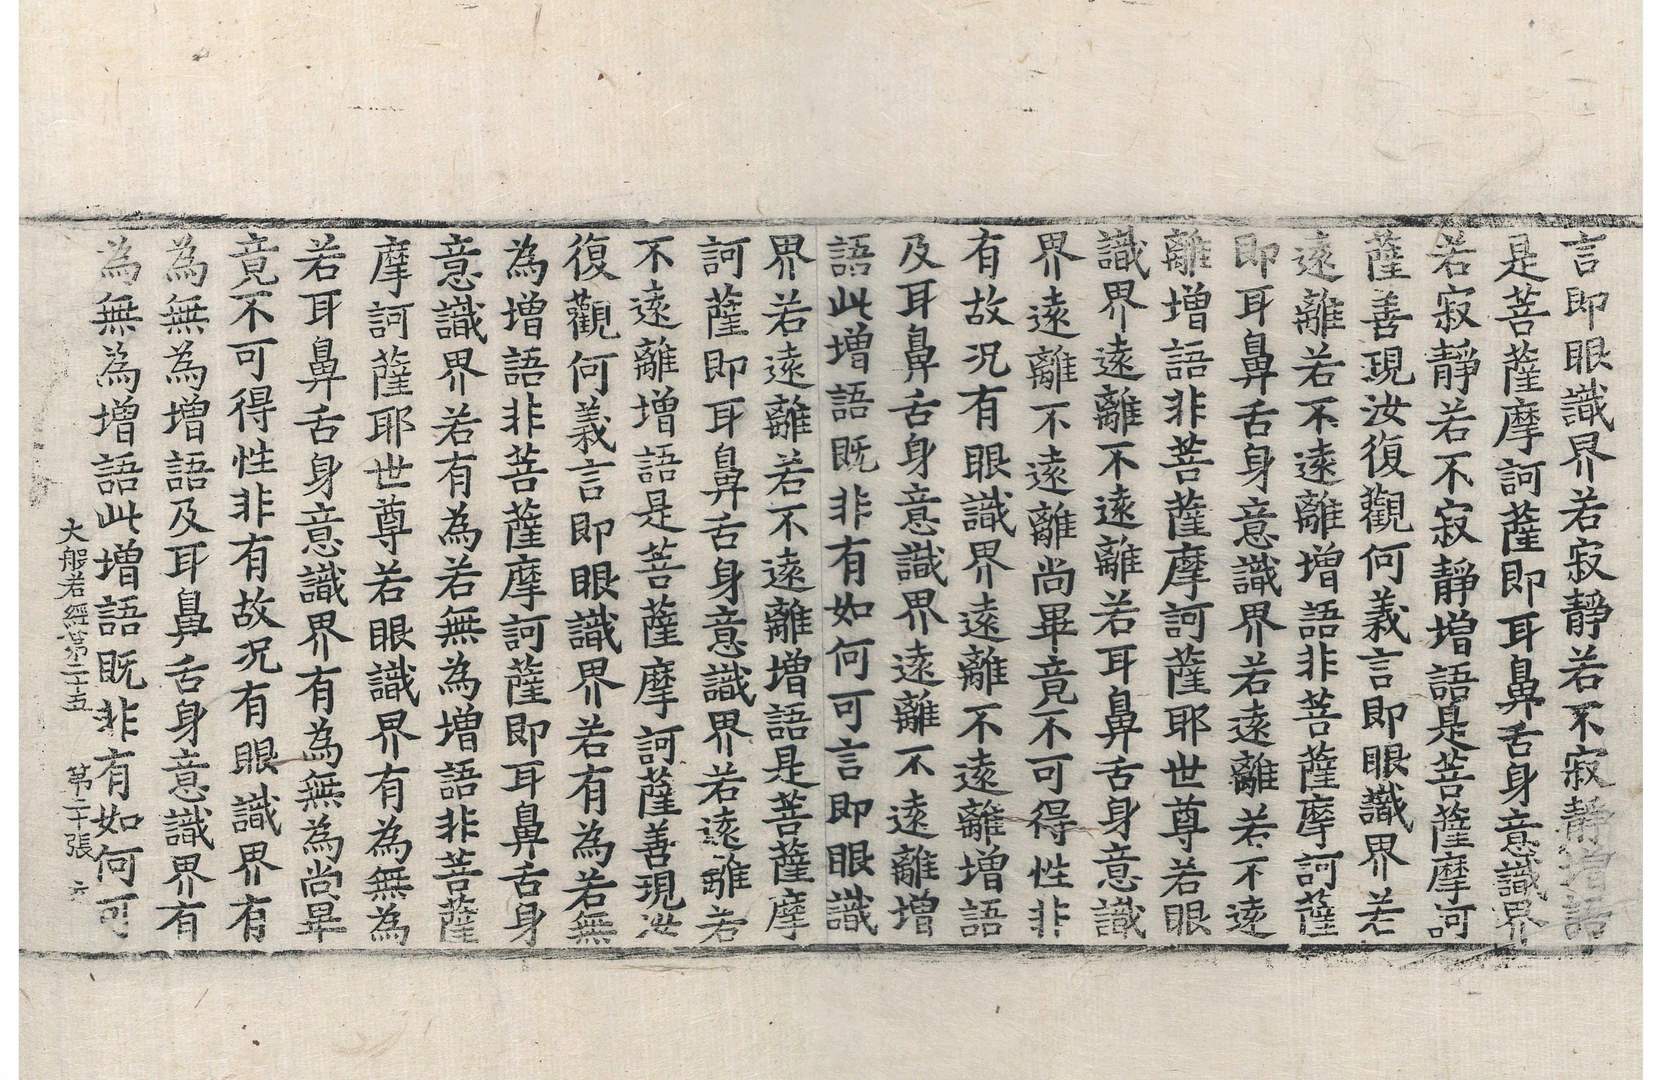 言即眼識界若寂靜若不寂靜增語
是菩薩摩訶薩即耳鼻舌身意識界
若寂靜若不寂靜增語是菩薩摩訶
薩善現汝復觀何義言即眼識界若
遠離若不遠離增語非菩薩摩訶薩
即耳鼻舌身意識界若遠離若不遠
離增語非菩薩摩訶薩耶世尊若眼
識界遠離不遠離若耳鼻舌身意識
界遠離不遠離尚畢竟不可得性非
有故况有眼識界遠離不遠離增語
及耳鼻舌身意識界遠離不遠離增
語此增語既非有如何可言即眼識
界若遠離若不遠離增語是菩薩摩
訶薩即耳鼻舌身意識界若遠離若
不遠離增語是菩薩摩訶薩善現汝
復觀何義言即眼識界若有為若無
為增語非菩薩摩訶薩即耳鼻舌身
意識界若有為若無為增語非菩薩
摩訶薩耶世尊若眼識界有為無為
若耳鼻舌身意識界有為無為尚畢
竟不可得性非有故况有眼識界有
為無為增語及耳鼻舌身意識界有
為無為增語此增語既非有如何可
大般若經第二十五 第二十張